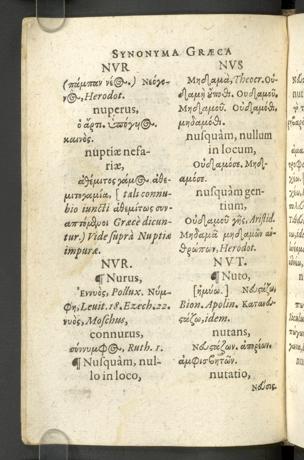 SYNONYMA GRÆCA
NVR
(πάμπαν νέος.) Νεόγε-
νος, Herodot.
nuperus,
ὁ ἄρτι. ὑπόγυος.
καινὸς.
nuptiæ nefa-
riæ,
ἀθέμιτος γάμος. ἀθε-
μιτογαμία, [ tali connu-
bio iuncti ἀθεμίτως συν-
Græcè dicun-
tur.) Vide suprà Nuptiæ
impuræ.
NVR.
¶ Nurus,
Ἐννυὸς, Pollux. Νύμ-
φη, Leuit. 18. Ezech. 22.
νυὸς, Moschus,
connurus,
σύννυμφος, Ruth. 1.
¶ Nusquàm, nul-
lo in loco,
NVS
Μηδαμᾶ, Theocr. Οὐ-
Οὐδαμοῦ,
Μηδαμοῦ. Οὐδαμόθι,
μηδαμόθι.
nusquàm, nullum
in locum,
Οὐδαμόσε. Μηδ-
αμόσε.
nusquàm gen-
tium,
Οὐδαμοῦ γῆς, Aristid.
Μηδαμᾶ μηδαμῶν ἀν-
θρώπων, Herodot.
NVT.
¶ Nuto,
[ἠμύω.] Νευστάζω,
Bion. Apolin. Κατανευ-
στάζω, idem.
nutans,
Νευστάζων. ἀπορέων.
ἀμφισβητῶν.
nutatio,
Νεῦσις.